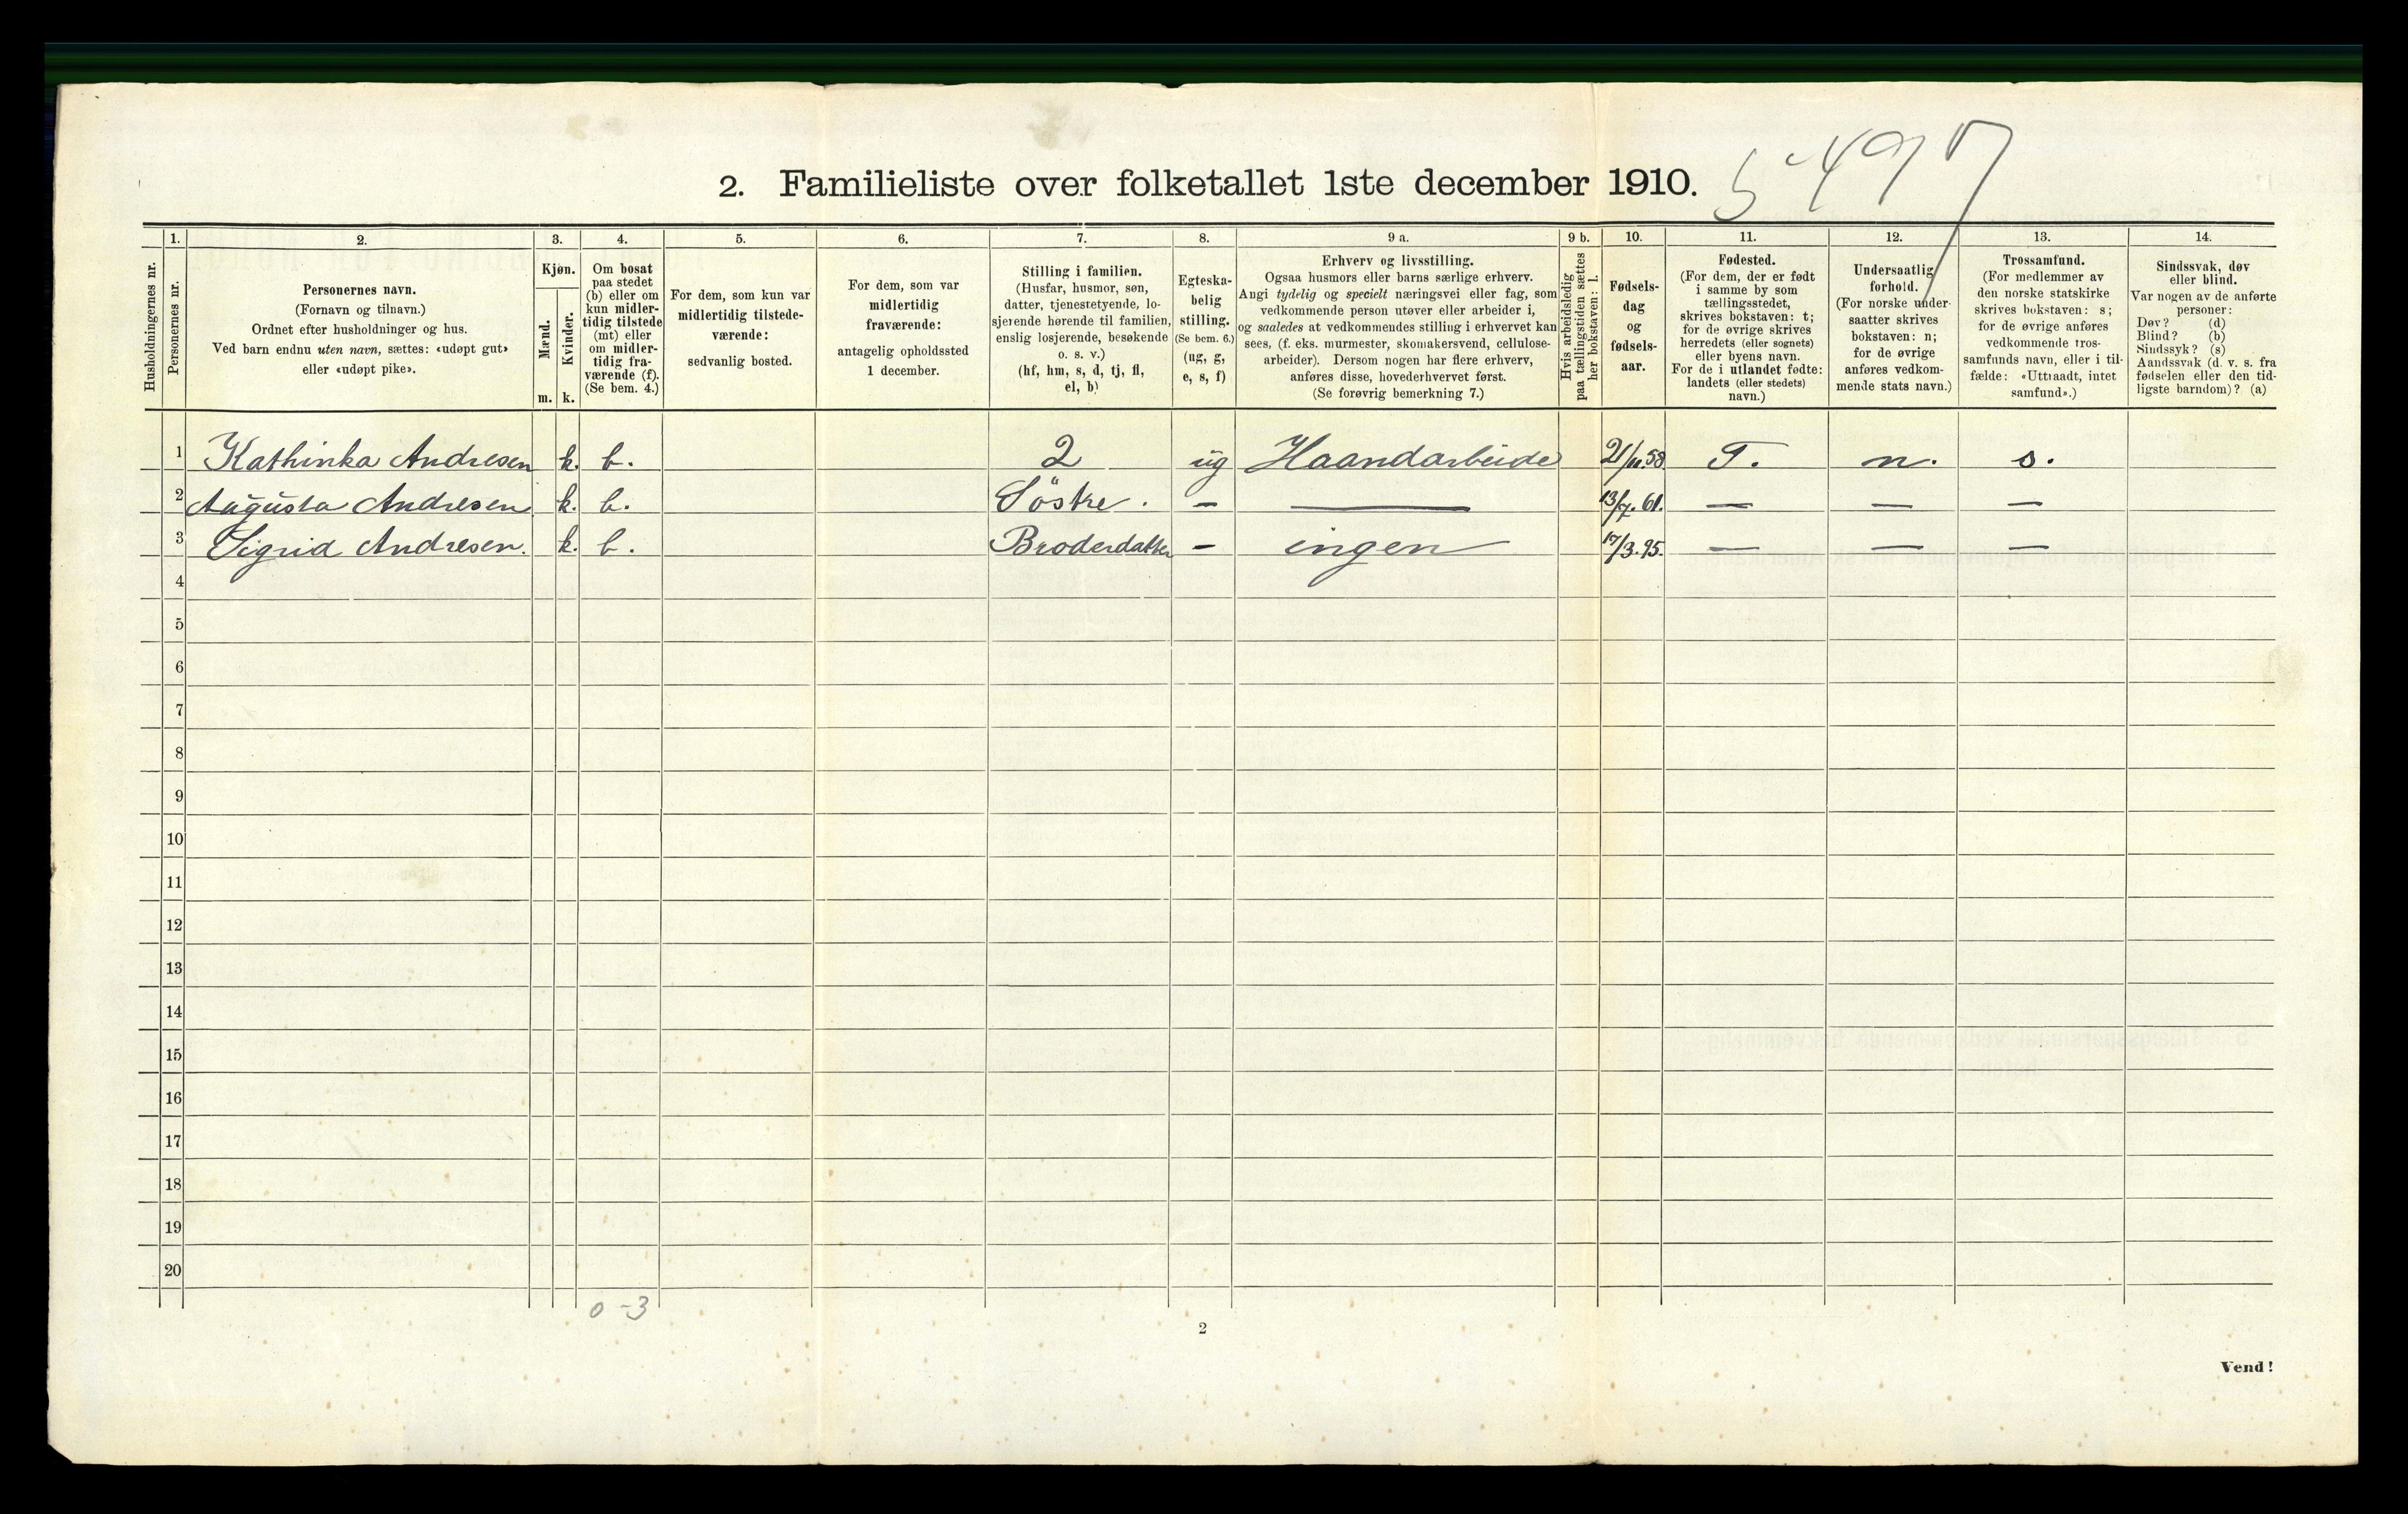 5497
2. Familieliste over folketallet 1ste december 1910.
Husholdningernes nr.
1.
Personernes nr.
2.
Personernes navn.
(Fornavn og tilnavn.)
Ordnet efter husholdninger og hus.
Ved barn endnu uten navn, sættes: «udøpt gut»
eller «udøpt pike».
3.
Kjøn.
Mænd.
Kvinder.
m. k.
4.
Om bosat
paa stedet
(b) eller om
kun midler-
tidig tilstede
(mt) eller
om midler-
tidig fra-
værende (f).
(Se bem. 4.)
5.
For dem, som kun var
midlertidig tilstede-
værende:
sedvanlig bosted.
6.
For dem, som var
midlertidig
fraværende:
antagelig opholdssted
1 december.
7.
Stilling i familien.
(Husfar, husmor, søn,
datter, tjenestetyende, lo-
sjerende hørende til familien,
enslig losjerende, besøkende
o. s. v.)
(hf, hm, s, d, tj, fl,
el, b)
8.
Egteska-
belig
stilling.
(Se bem. 6.)
(ug, g,
e, s, f)
9 a.
Erhverv og livsstilling.
Ogsaa husmors eller barns særlige erhverv.
Angi tydelig og specielt næringsvei eller fag, som
vedkommende person utøver eller arbeider i,
og saaledes at vedkommendes stilling i erhvervet kan
sees, (f. eks. murmester, skomakersvend, cellulose-
arbeider). Dersom nogen har flere erhverv,
anføres disse, hovederhvervet først.
(Se forøvrig bemerkning 7.)
9 b.
Hvis arbeidsledig
paa tællingstiden sættes
her bokstaven: l.
10.
Fødsels-
dag
og
fødsels-
aar.
11.
Fødested.
(For dem, der er født
i samme by som
tællingsstedet,
skrives bokstaven: t;
for de øvrige skrives
herredets (eller sognets)
eller byens navn.
For de i utlandet fødte:
landets (eller stedets)
navn.)
12.
Undersaatlig
forhold.
(For norske under-
saatter skrives
bokstaven: n;
for de øvrige
anføres vedkom-
mende stats navn.)
13.
Trossamfund.
(For medlemmer av
den norske statskirke
skrives bokstaven: s;
for de øvrige anføres
vedkommende tros-
samfunds navn, eller i til-
fælde: «Uttraadt, intet
samfund».)
14.
Sindssvak, døv
eller blind.
Var nogen av de anførte
personer:
Døv? (d)
Blind? (b)
Sindssyk? (s)
Aandssvak (d. v. s. fra
fødselen eller den tid-
ligste barndom)? (a)
1 Kathinka Andresen k. b. 2 ug Haandarbeide 21/11.58 T. n. s.
2 Augusta Andresen k. b. Söstre. — — 13/7.61. — — —
3 Sigrid Andresen. k. b. Broderdatter — ingen 17/3.95. — — —
4
5
6
7
8
9
10
11
12
13
14
15
16
17
18
19
20
0 - 3
2
Vend!